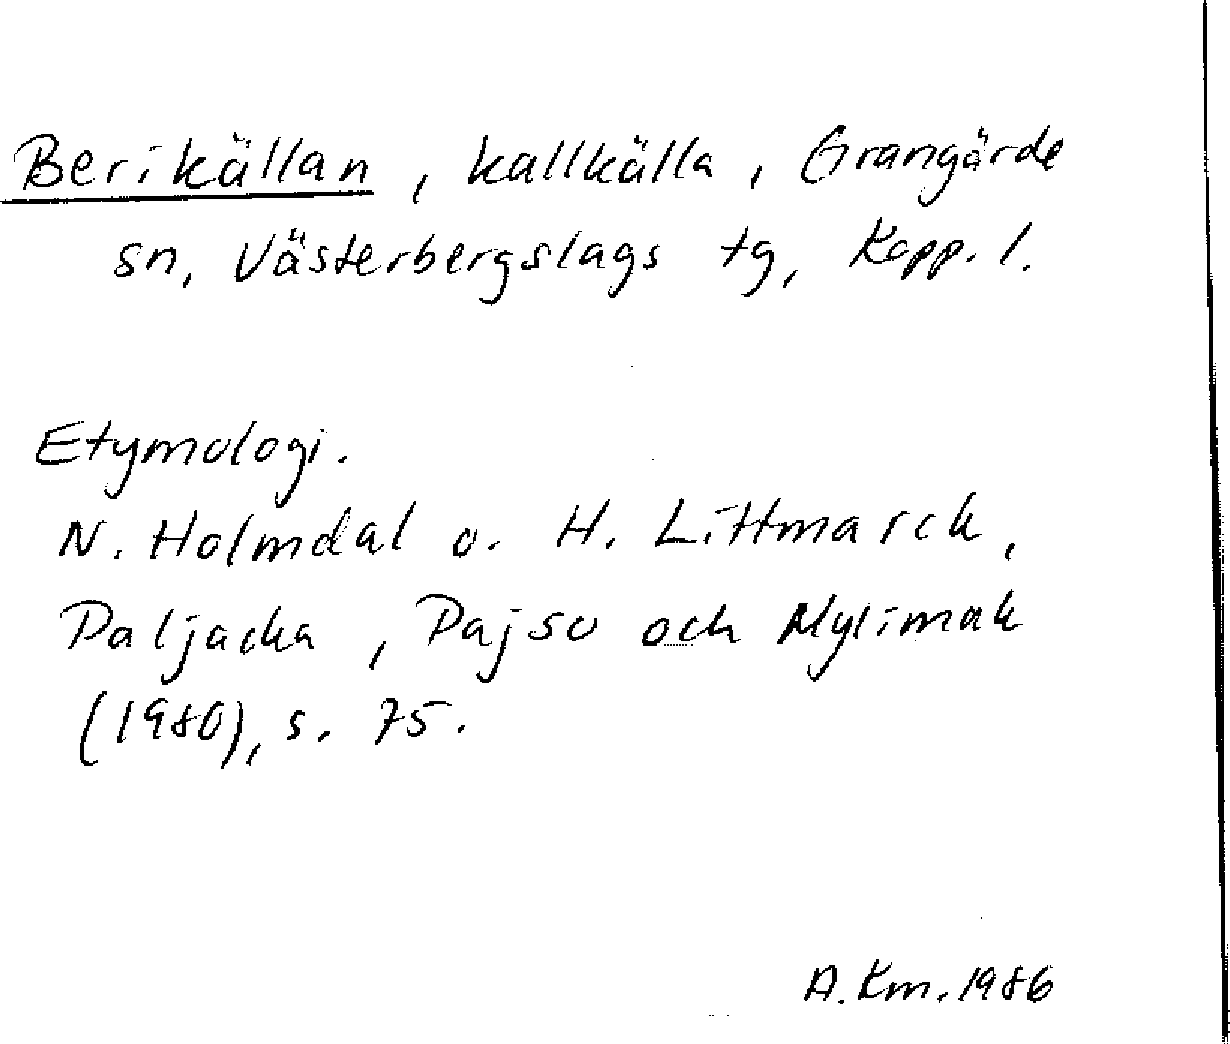 Berikällan, kallkälla, Grangärde
sn, Västerbergslags tg, Kopp. l.
Etymologi.
N. Holmdal o. H. Littmarck,
Paljacka, Pajso och Mylimak
(1980), s. 75.
A. Km. 1986